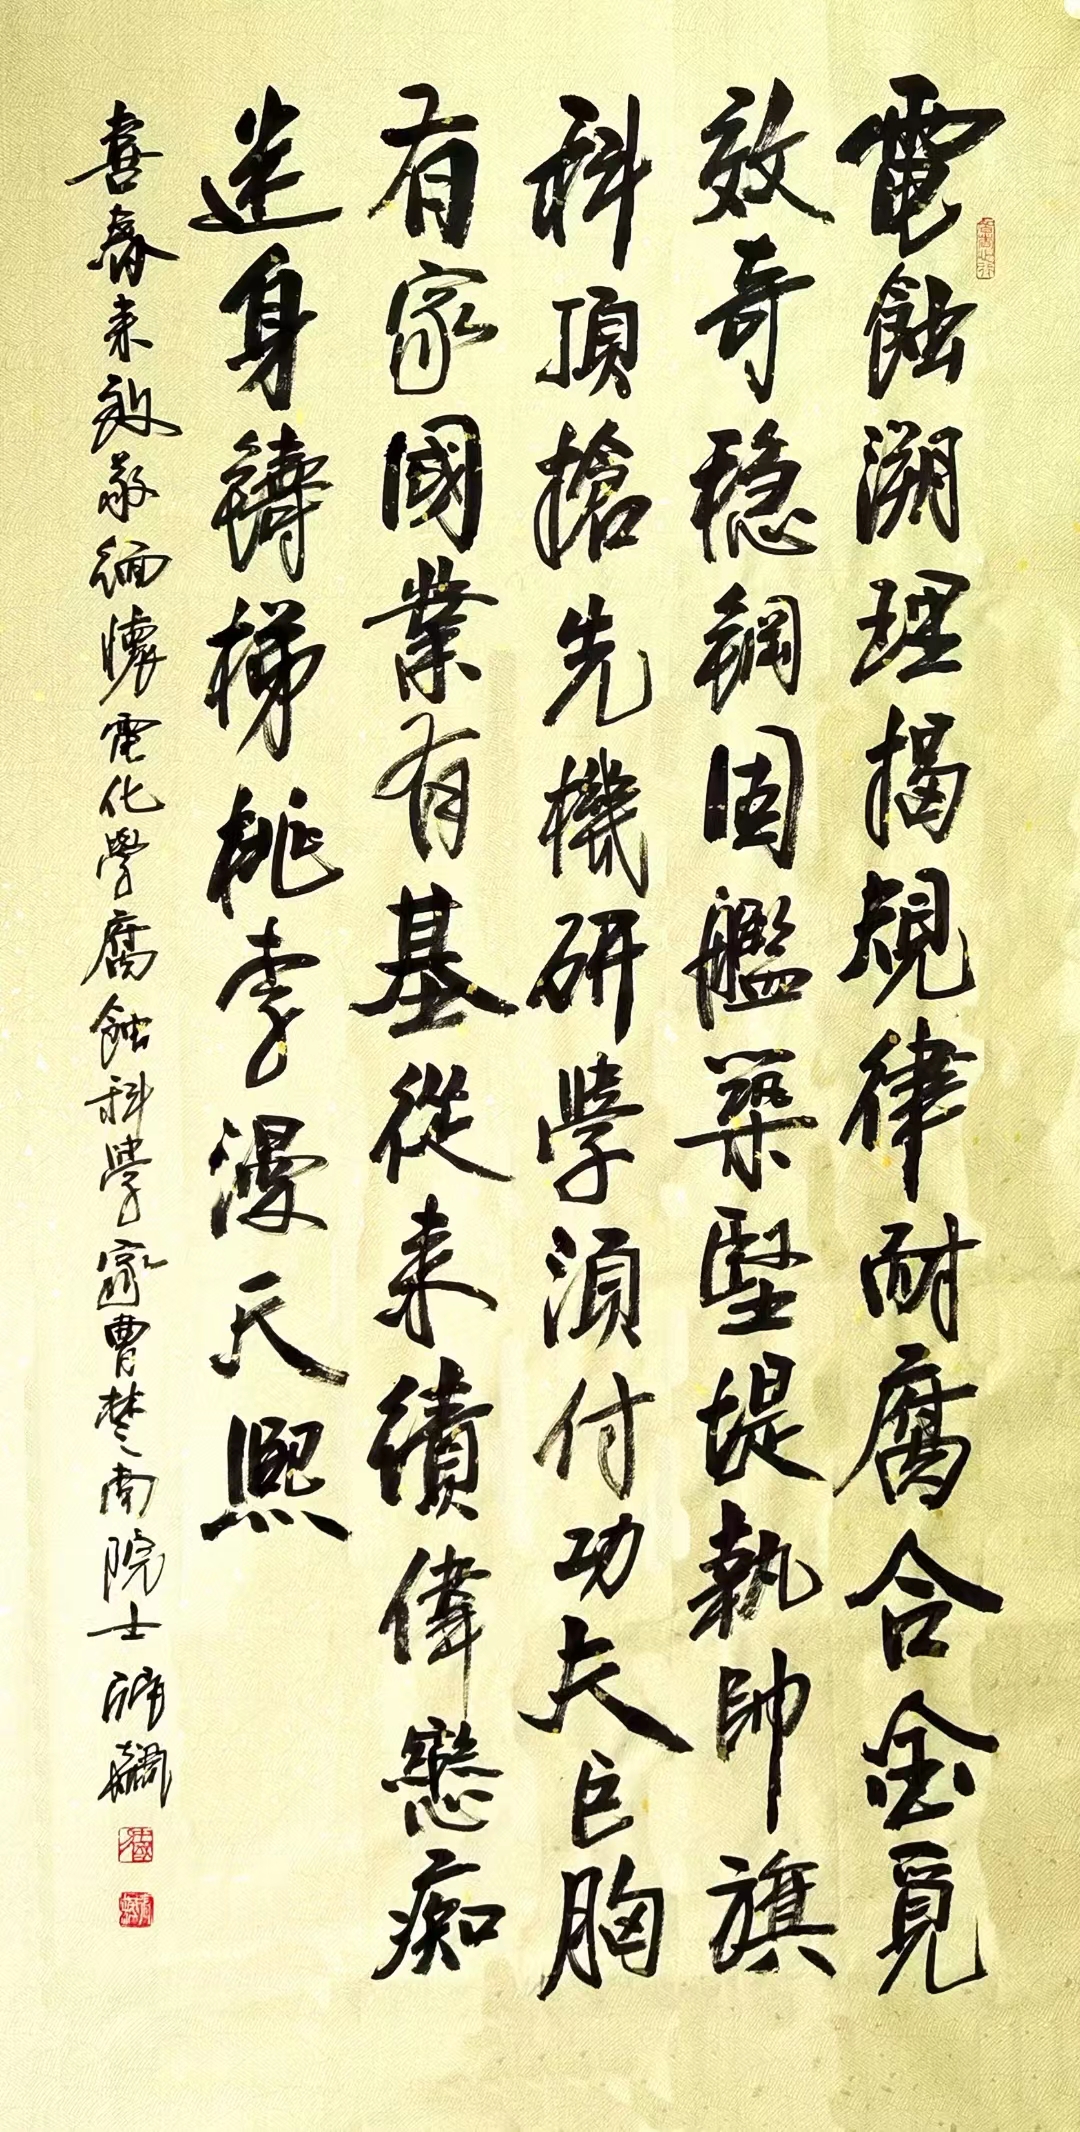 電蝕溯理揭規律耐腐合金覓
效奇穩鋼固艦築堅堤執帥旗
科頂搶先機研學須付功夫巨胸
有家國業有基從來績偉戀痴
迷身鑄梯桃李漫天熙
喜春来敬緬懷電化學腐蝕科學家曹楚南院士